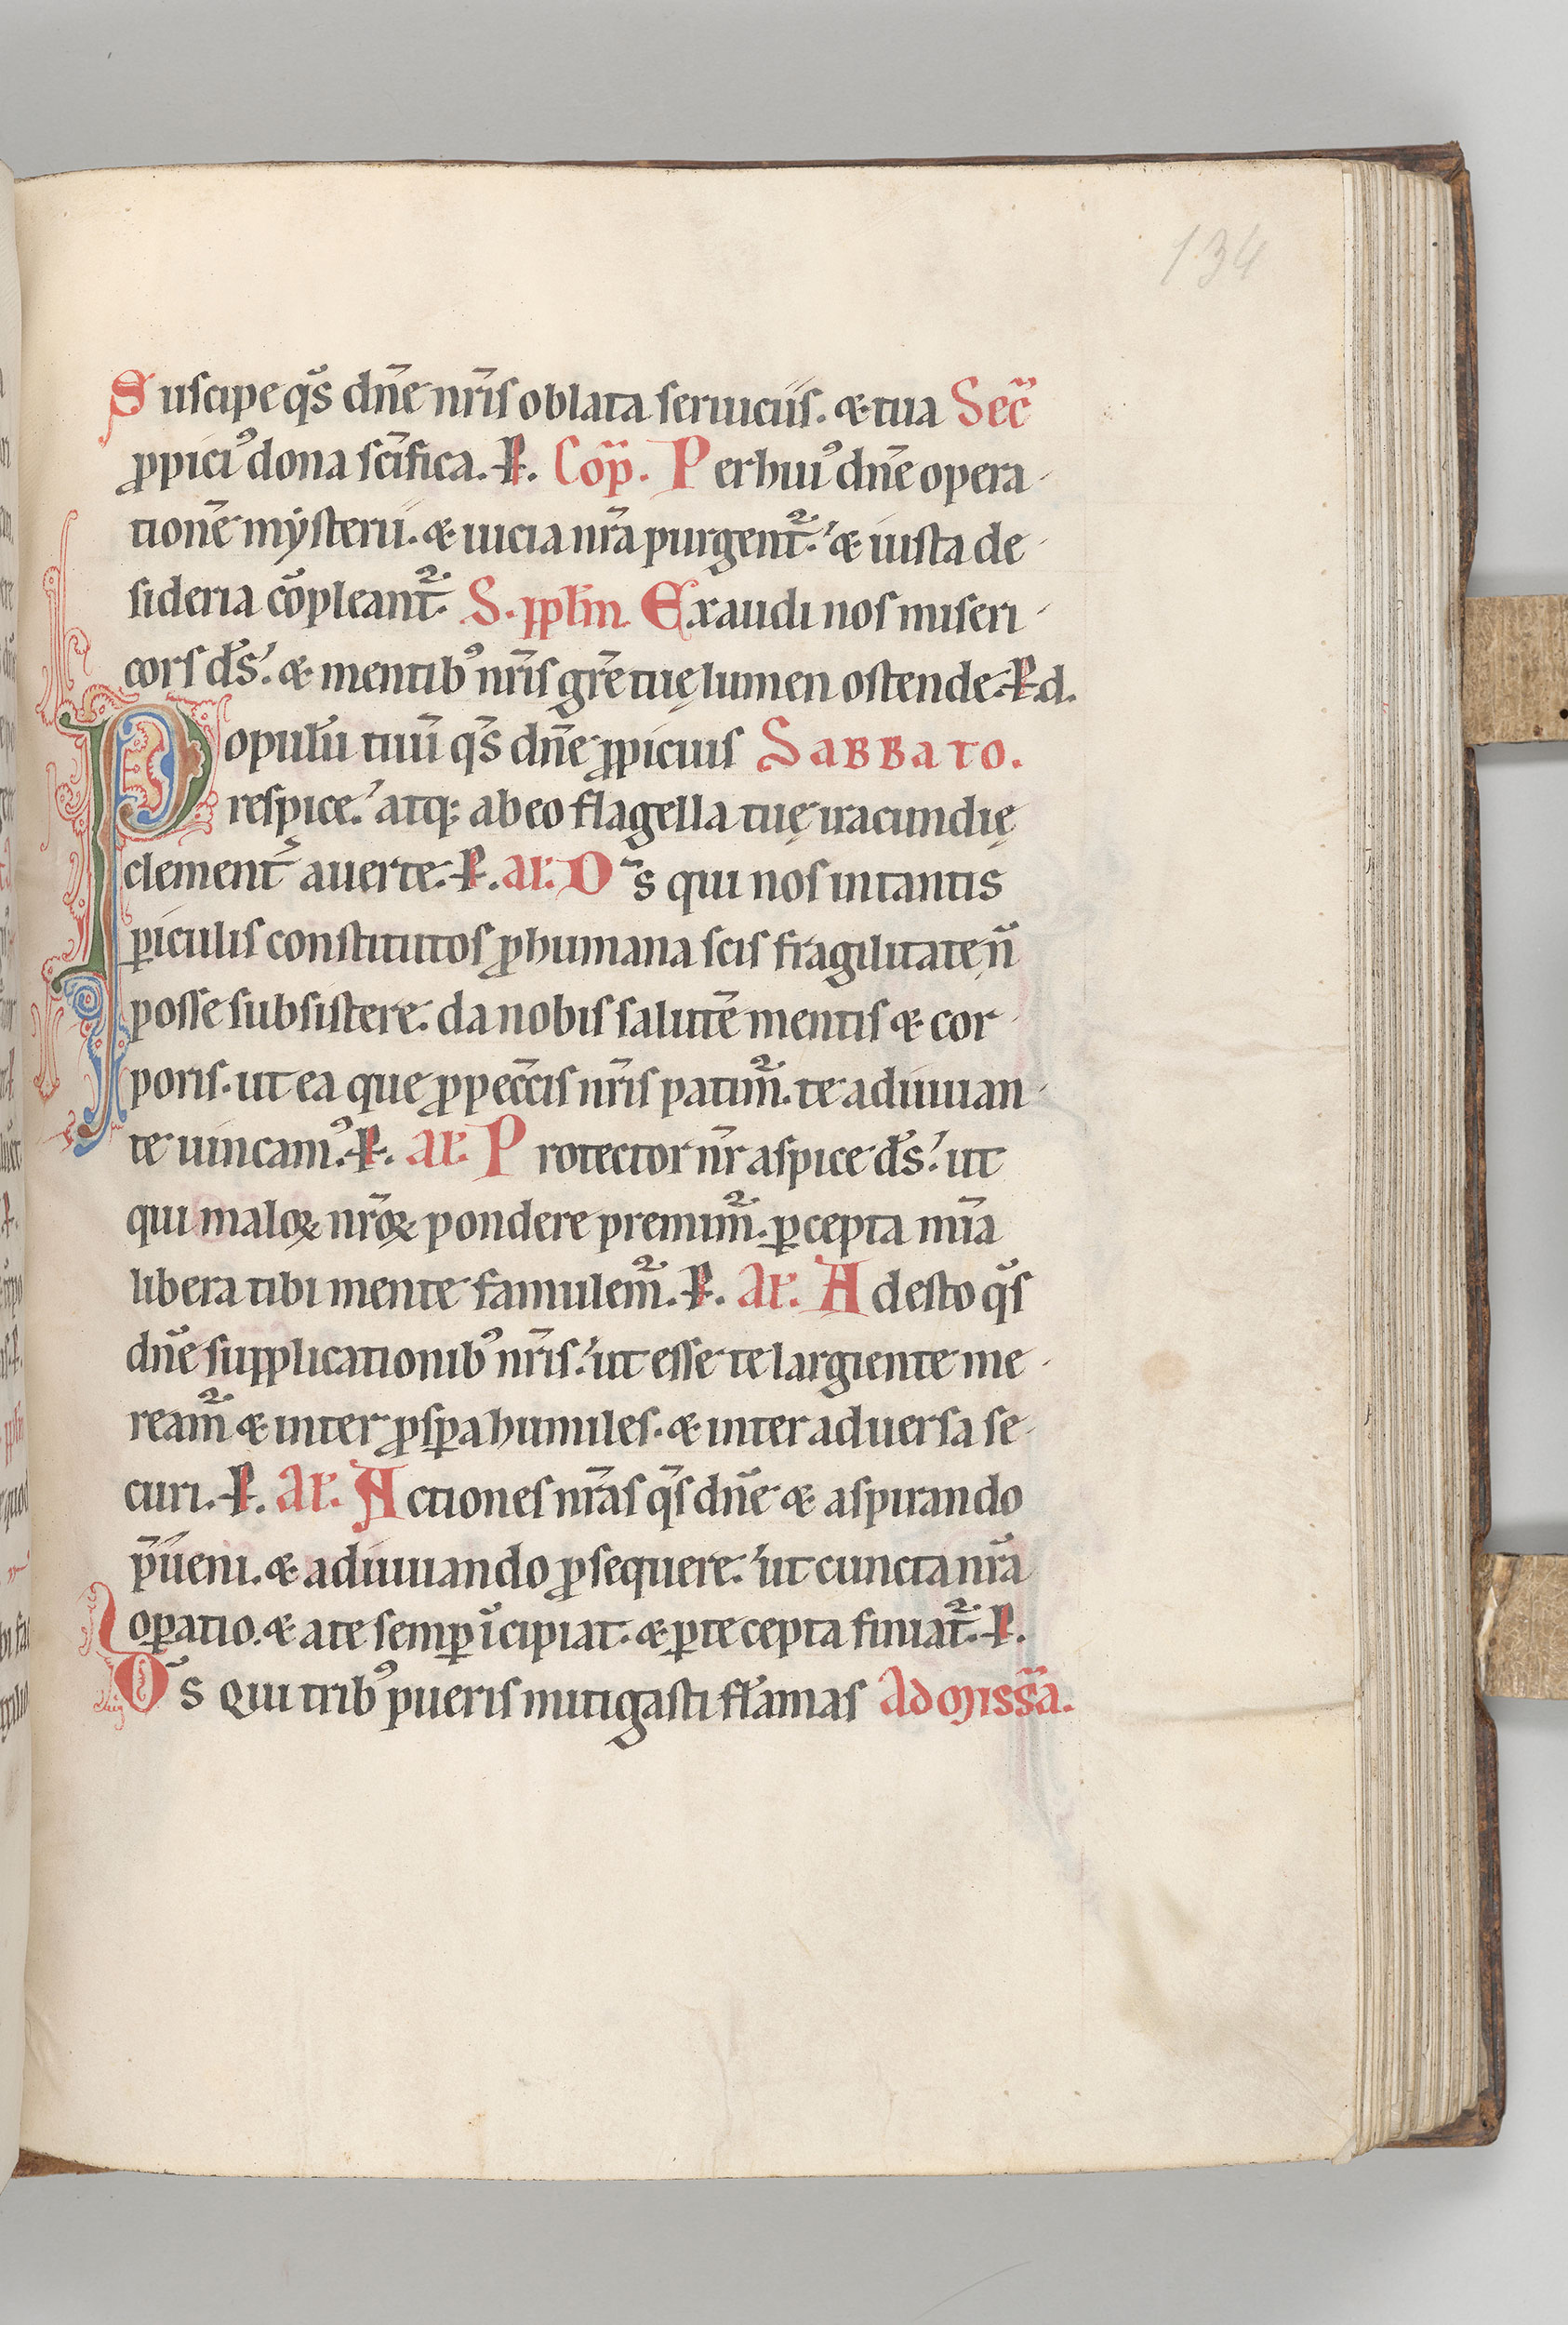 134
Suscipe q̄s dn̄e nr̄is oblata seruiciis. & tua Sec̄
ꝓpiciꝰ dona sc̄ifica. P. Cōp. Per huiꝰ dn̄e opera
tionē mysterii. & uicia nr̄a purgent᷑. & iusta de
sideria cōpleant᷑. S. pplm̄. Exaudi nos miseri
cors ds̄. & mentibꝰ nr̄is gr̄e tuę lumen ostende. P. d.
Populū tuū q̄s dn̄e ꝓpicius Sabbato.
respice. atq; ab eo flagella tuę iracundię
clement̄ auerte. P. al'. Ds̄ qui nos in tantis
ꝑiculis constitutos ꝓ humana scis fragilitate n̄
posse subsistere. da nobis salutē mentis & cor
poris. ut ea que ꝓ pecc̄is nr̄is patim᷑. te adiuuan
te uincamꝰ. P. al'. Protector nr̄ aspice ds̄. ut
qui maloꝝ nr̄oꝝ pondere premim᷑. ꝑcepta mi̅a
libera tibi mente famulem᷑. P. al'. Adesto q̄s
dn̄e supplicationibꝰ nr̄is. ut esse te largiente me
ream᷑ & inter ꝓspꝑa humiles. & inter aduersa se
curi. P. al'. Actiones nr̄as q̄s dn̄e & aspirando
p̄ueni. & adiuuando ꝓsequere. ut cuncta nr̄a
oꝑatio. & a te semꝑ īcipiat. & ꝑ te cepta finiat᷑. P.
Ds̄ qui tribꝰ pueris mitigasti flāmas Ad missā.